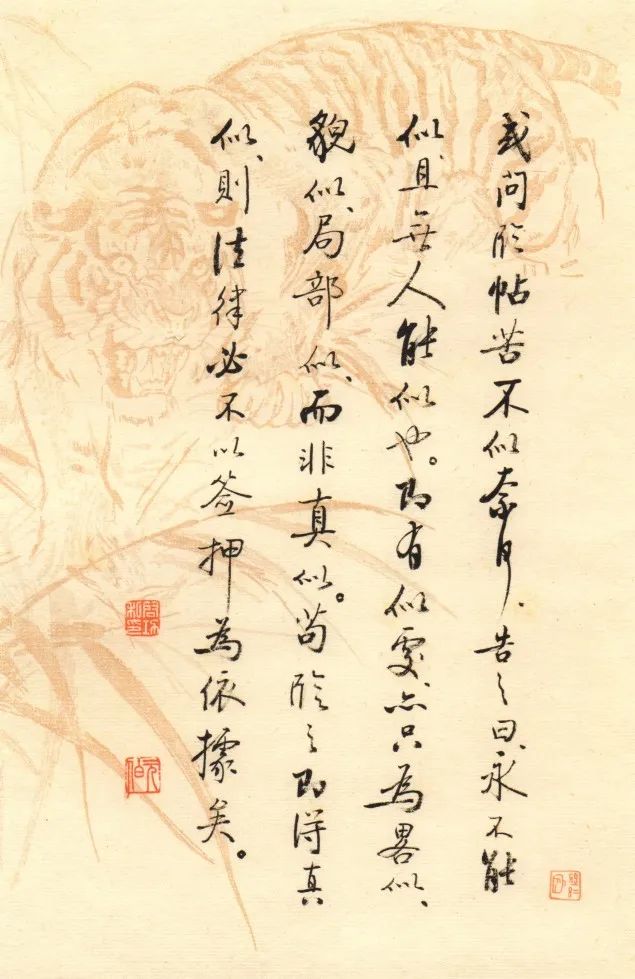 或问临帖苦不似奈何、告之曰、永不能
似、且無人能似也。即有似處、亦只為畧似、
貌似、局部似、而非真似。苟临之即得真
似、則法律必不以签押為依據矣。
启功私印
元白